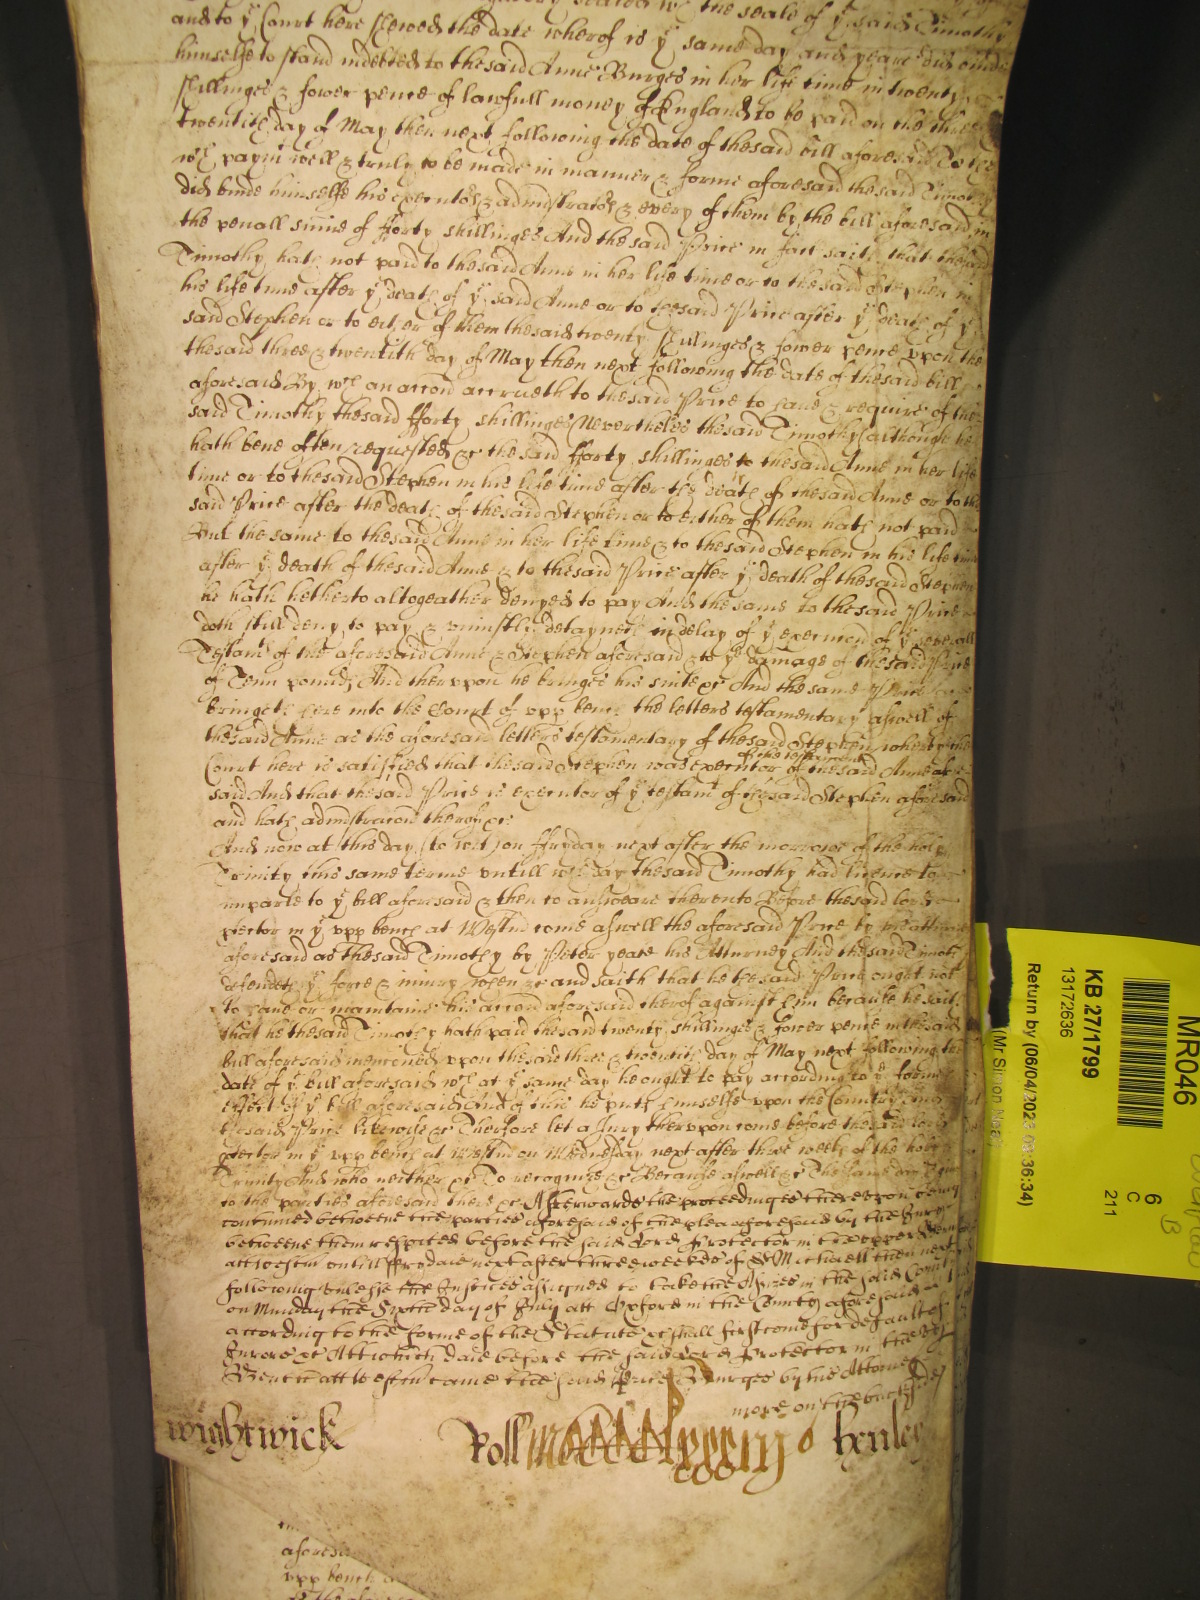 sealed wth the seale of ye said Timothy
and to ye Court here shewed the date wherof is ye same day and yeare did
himselfe to stand indebted to the said Anne Burges in her life time in twenty
shillinges & fower pence of lawfull money of England to be paid on the three
twentith day of May then next following the date of the said bill aforesaid To the
wch paymt well & truly to be made in manner & forme aforesaid the said Timothy
did binde himselfe his executors & administrators & every of them by the bill aforesaid in
the penall summe of fforty shillinges And the said Price in fact saith that the said
Timothy hath not paid to the said Anne in her life time or to the said Stephen in
his life time after ye death of ye said Anne or to the said Price after ye death of ye
said Stephen or to either of them the said twenty shillinges & fower pence upon the
the said three & twentith day of May then next following the date of the said bill
aforesaid By wch an accon accrueth to the said Price to have & require of the
said Timothy the said fforty shillinges Nevertheles the said Timothy (although he
hath bene often requested &c the said fforty shillinges to the said Anne in her life
time or to the said Stephen in his life time after the death of the said Anne or to the
said Price after the death of the said Stephen or to either of them hath not paid
But the same to the said Anne in her life time & to the said Stephen in his life time
after ye death of the said Anne & to the said Price after ye death of the said Stephen
he hath hetherto altogeather denyed to pay And the same to the said Price
doth still deny to pay & uniustly detayneth in delay of ye execucion of ye severall
Testamts of the aforesaid Anne & Stephen aforesaid & to ye damage of the said Price
of Tenn pounds And therupon he bringes his suite &c And the same Price
bringeth here into the Court of upp bench the letters testamentary aswell of
the said Anne as the aforesaid letters testamentary of the said Stephen wherby the
Court here is satisfied that the said Stephen was executor of the testament of the said Anne
said And that the said Price is executor of ye testamt of the said Stephen aforesaid
and hath administracon therof &c
And now at this day (to wit) on ffryday next after the morrowe of the holy
Trinity this same terme untill wch day the said Timothy had licence to
imparle to ye bill aforesaid & then to answeare therunto Before the said lord
ptector in ye upp bench at Westmr come aswell the aforesaid Price by his attorney
aforesaid as the said Timothy by Peter yeate his Atturney And the said Timothy
defendeth ye force & iniury when &c and saith that he the said Price ought not
to have or maintaine his accon aforesaid therof against him because he saith
that he the said Timothy hath paid the said twenty shillinges & fower pence in the said
bill aforesaid menconed upon the said three & twentith day of May next following the
date of ye bill aforesaid wch at ye same day he ought to pay according to ye forme
effect of ye bill aforesaid And of this he puts himselfe upon the Country And
the said Price likewise &c Therfore let a Jury therupon come before the said lord
ptector in ye upp bench at Westmr on Wednesday next after three weeks of the holy
Trinity And who neither &c To recognize &c Because aswell &c The same day is given
to the parties aforesaid there &c Afterwards the proceedinges thereupon being
continued betweene the parties aforesaid of the plea aforesaid by the Jury
betweene them respited before the said Lord Protector in the upper Bench
att Westmr untill ffryday next after three weekes of St Michaell then next
following unlesse the Justices assigned to take the Assizes in the said County
on Munday the Sixth day of July att Oxford in the County aforesaid
according to the forme of the Statute &c shall first come for default of
Jurors &c Att which daie before the said Lord Protector in the upp
Bench att Westmr came the said Price Burges by his Attorney
more on the backside
wightwick
Roll
henley
aforesaid
upp bench
MR046
KB 27/1799
13172636
Return by (06/04/2023 08:36:34)
6
C
211